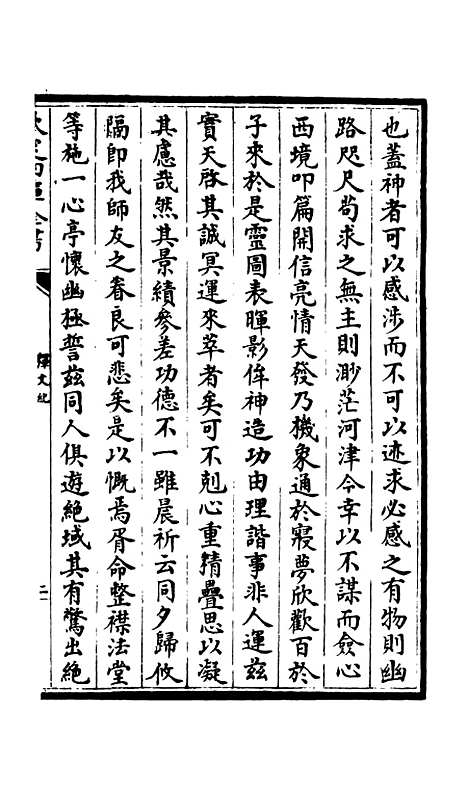 也蓋神者可以感涉而不可以迹求必感之有物則幽
路咫尺茍求之無主則渺茫河津今幸以不謀而僉心
西境叩篇開信亮情天發乃機象通於寢夢欣歡百於
子來於是靈圖表暉影侔神造功由理諧事非人運兹
實天啓其誠冥運來萃者矣可不剋心重精疊思以凝
其慮哉然其景績參差功德不一雖晨祈云同夕歸攸
隔即我師友之眷良可悲矣是以慨焉胥命整襟法堂
等施一心亭懷幽極誓兹同人俱遊絶域其有驚出絶
欽定四庫全書
釋文紀
二